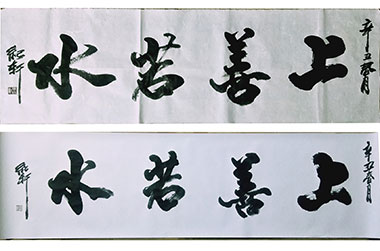 辛丑 春月
上善若水
辛丑 春月
上善若水